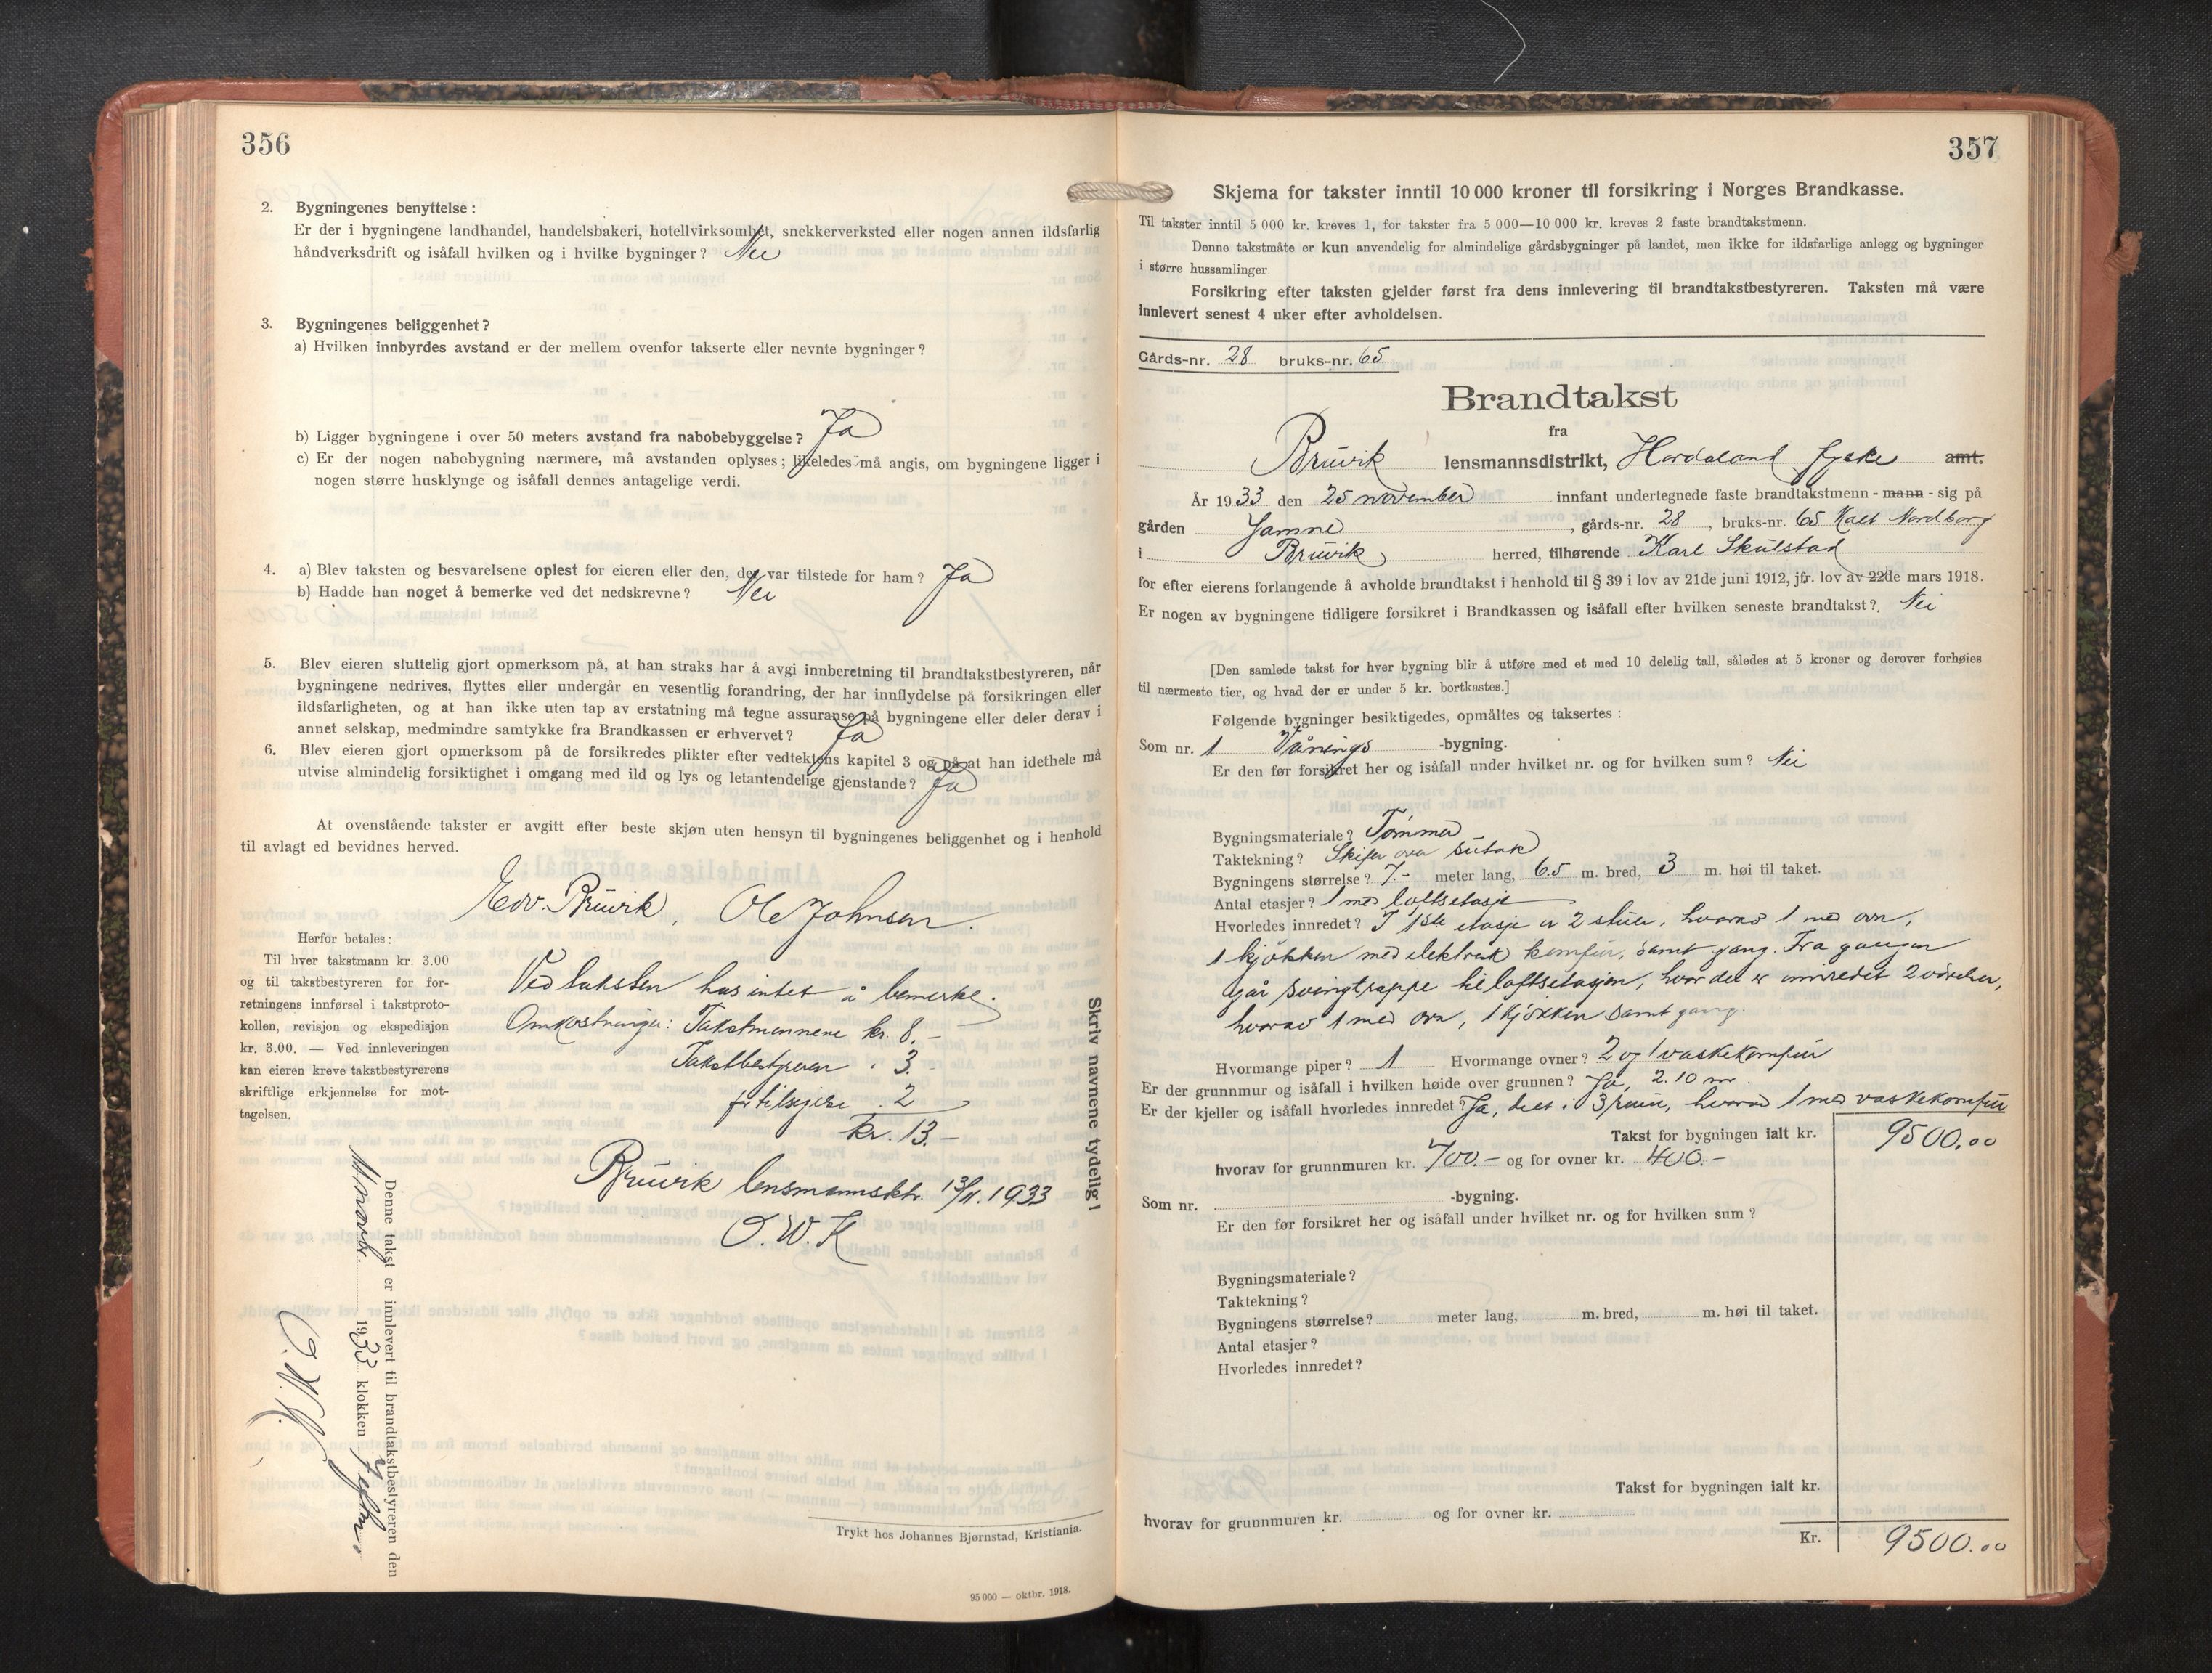 356
2. Bygningenes benyttelse:
Er der i bygningene landhandel, handelsbakeri, hotellvirksomhet, snekkerverksted eller nogen annen ildsfarlig
håndverksdrift og isåfall hvilken og i hvilke bygninger? Nei
3. Bygningenes beliggenhet?
a) Hvilken innbyrdes avstand er der mellem ovenfor takserte eller nevnte bygninger?
b) Ligger bygningene i over 50 meters avstand fra nabobebyggelse? Ja
c) Er der nogen nabobygning nærmere, må avstanden oplyses; likeledes må angis, om bygningene ligger i
nogen større husklynge og isåfall dennes antagelige verdi.
4. a) Blev taksten og besvarelsene oplest for eieren eller den, der var tilstede for ham? Ja
b) Hadde han noget å bemerke ved det nedskrevne? Nei
5. Blev eieren sluttelig gjort opmerksom på, at han straks har å avgi innberetning til brandtakstbestyreren, når
bygningene nedrives, flyttes eller undergår en vesentlig forandring, der har innflydelse på forsikringen eller
ildsfarligheten, og at han ikke uten tap av erstatning må tegne assuranse på bygningene eller deler derav i
annet selskap, medmindre samtykke fra Brandkassen er erhvervet? Ja
6. Blev eieren gjort opmerksom på de forsikredes plikter efter vedtektens kapitel 3 og på at han idethele må
utvise almindelig forsiktighet i omgang med ild og lys og letantendelige gjenstande? Ja
At ovenstående takster er avgitt efter beste skjøn uten hensyn til bygningenes beliggenhet og i henhold
til avlagt ed bevidnes herved.
Edv. Bruvik, Ole Johnsen.
Herfor betales:
Til hver takstmann kr. 3.00
og til takstbestyreren for for-
retningens innførsel i takstproto-
kollen, revisjon og ekspedisjon
kr. 3.00. — Ved innleveringen
kan eieren kreve takstbestyrerens
skriftlige erkjennelse for mot-
tagelsen.
Ved taksten has intet å bemerke.
Omkostninger: Takstmennene kr. 8.-
Takstbestyreren " 3.
" 2
kr. 13.-
Bruvik lensmannsktr. 13/11. 1933
O. W. K
Skriv navnene tydelig!
Denne takst er innlevert til brandtakstbestyreren den
11 novbr. 1933 klokken 7 eftm.
O. W. K.
Trykt hos Johannes Bjørnstad, Kristiania.
95 000 — oktbr. 1918.
357
Skjema for takster inntil 10 000 kroner til forsikring i Norges Brandkasse.
Til takster inntil 5 000 kr. kreves 1, for takster fra 5 000—10 000 kr. kreves 2 faste brandtakstmenn.
Denne takstmåte er kun anvendelig for almindelige gårdsbygninger på landet, men ikke for ildsfarlige anlegg og bygninger
i større hussamlinger.
Forsikring efter taksten gjelder først fra dens innlevering til brandtakstbestyreren. Taksten må være
innlevert senest 4 uker efter avholdelsen.
Gårds-nr. 28 bruks-nr. 65
Brandtakst
fra
Bruvik lensmannsdistrikt, Hordaland fylke amt.
År 1933 den 25 november innfant undertegnede faste brandtakstmenn - mann - sig på
gården Jamne, gårds-nr. 28, bruks-nr. 65 Kalt Nordborg
i Bruvik herred, tilhørende Karl Skulstad
for efter eierens forlangende å avholde brandtakst i henhold til § 39 i lov av 21de juni 1912, jfr. lov av 22de mars 1918.
Er nogen av bygningene tidligere forsikret i Brandkassen og isåfall efter hvilken seneste brandtakst? Nei
[Den samlede takst for hver bygning blir å utføre med et med 10 delelig tall, således at 5 kroner og derover forhøies
til nærmeste tier, og hvad der er under 5 kr. bortkastes.]
Følgende bygninger besiktigedes, opmåltes og taksertes:
Som nr. 1 Vånings-bygning.
Er den før forsikret her og isåfall under hvilket nr. og for hvilken sum? Nei
Bygningsmateriale? Tømmer
Taktekning? Skifer over sutak
Bygningens størrelse? 7.- meter lang, 6.5 m. bred, 3 m. høi til taket.
Antal etasjer? 1 med loftsetasje
Hvorledes innredet? I 1ste etasje er 2 stuer, hvorav 1 med ovn,
1 kjøkken med elektrisk komfur, samt gang. Fra gangen
går svingtrappe til loftsetasjen, hvor det er innredet 2 værelser,
hvorav 1 med ovn, 1 kjøkken samt gang.
Hvormange piper? 1 Hvormange ovner? 2 og 1 vaskekomfur
Er der grunnmur og isåfall i hvilken høide over grunnen? Ja, 2.10 m.
Er der kjeller og isåfall hvorledes innredet? Ja, delt i 3 rum, hvorav 1 med vaskekomfur
Takst for bygningen ialt kr. 9500.00
hvorav for grunnmuren kr. 700.- og for ovner kr. 400.-
Som nr. -bygning.
Er den før forsikret her og isåfall under hvilket nr. og for hvilken sum?
Bygningsmateriale?
Taktekning?
Bygningens størrelse? meter lang, m. bred, m. høi til taket.
Antal etasjer?
Hvorledes innredet?
Takst for bygningen ialt kr.
hvorav for grunnmuren kr. og for ovner kr.
Kr. 9500.00